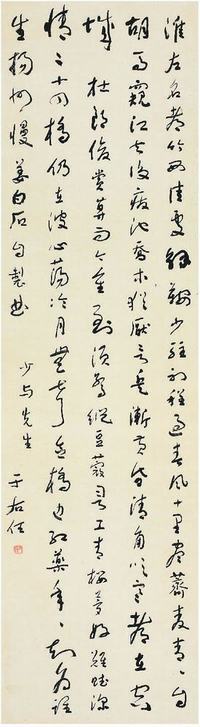 淮左名都竹西佳處解鞍少駐初程過春風十里盡薺麥青〻自
胡馬窺江去後廢池喬木猶厭言兵漸黃昏清角吹寒都在空
城杜郎俊賞算而今重到須驚縱豆蔻詞工青樓夢好難賦深
情二十四橋仍在波心蕩冷月無聲念橋邊紅藥年〻知為誰
生揚州慢姜白石自製曲
少与先生
于右任